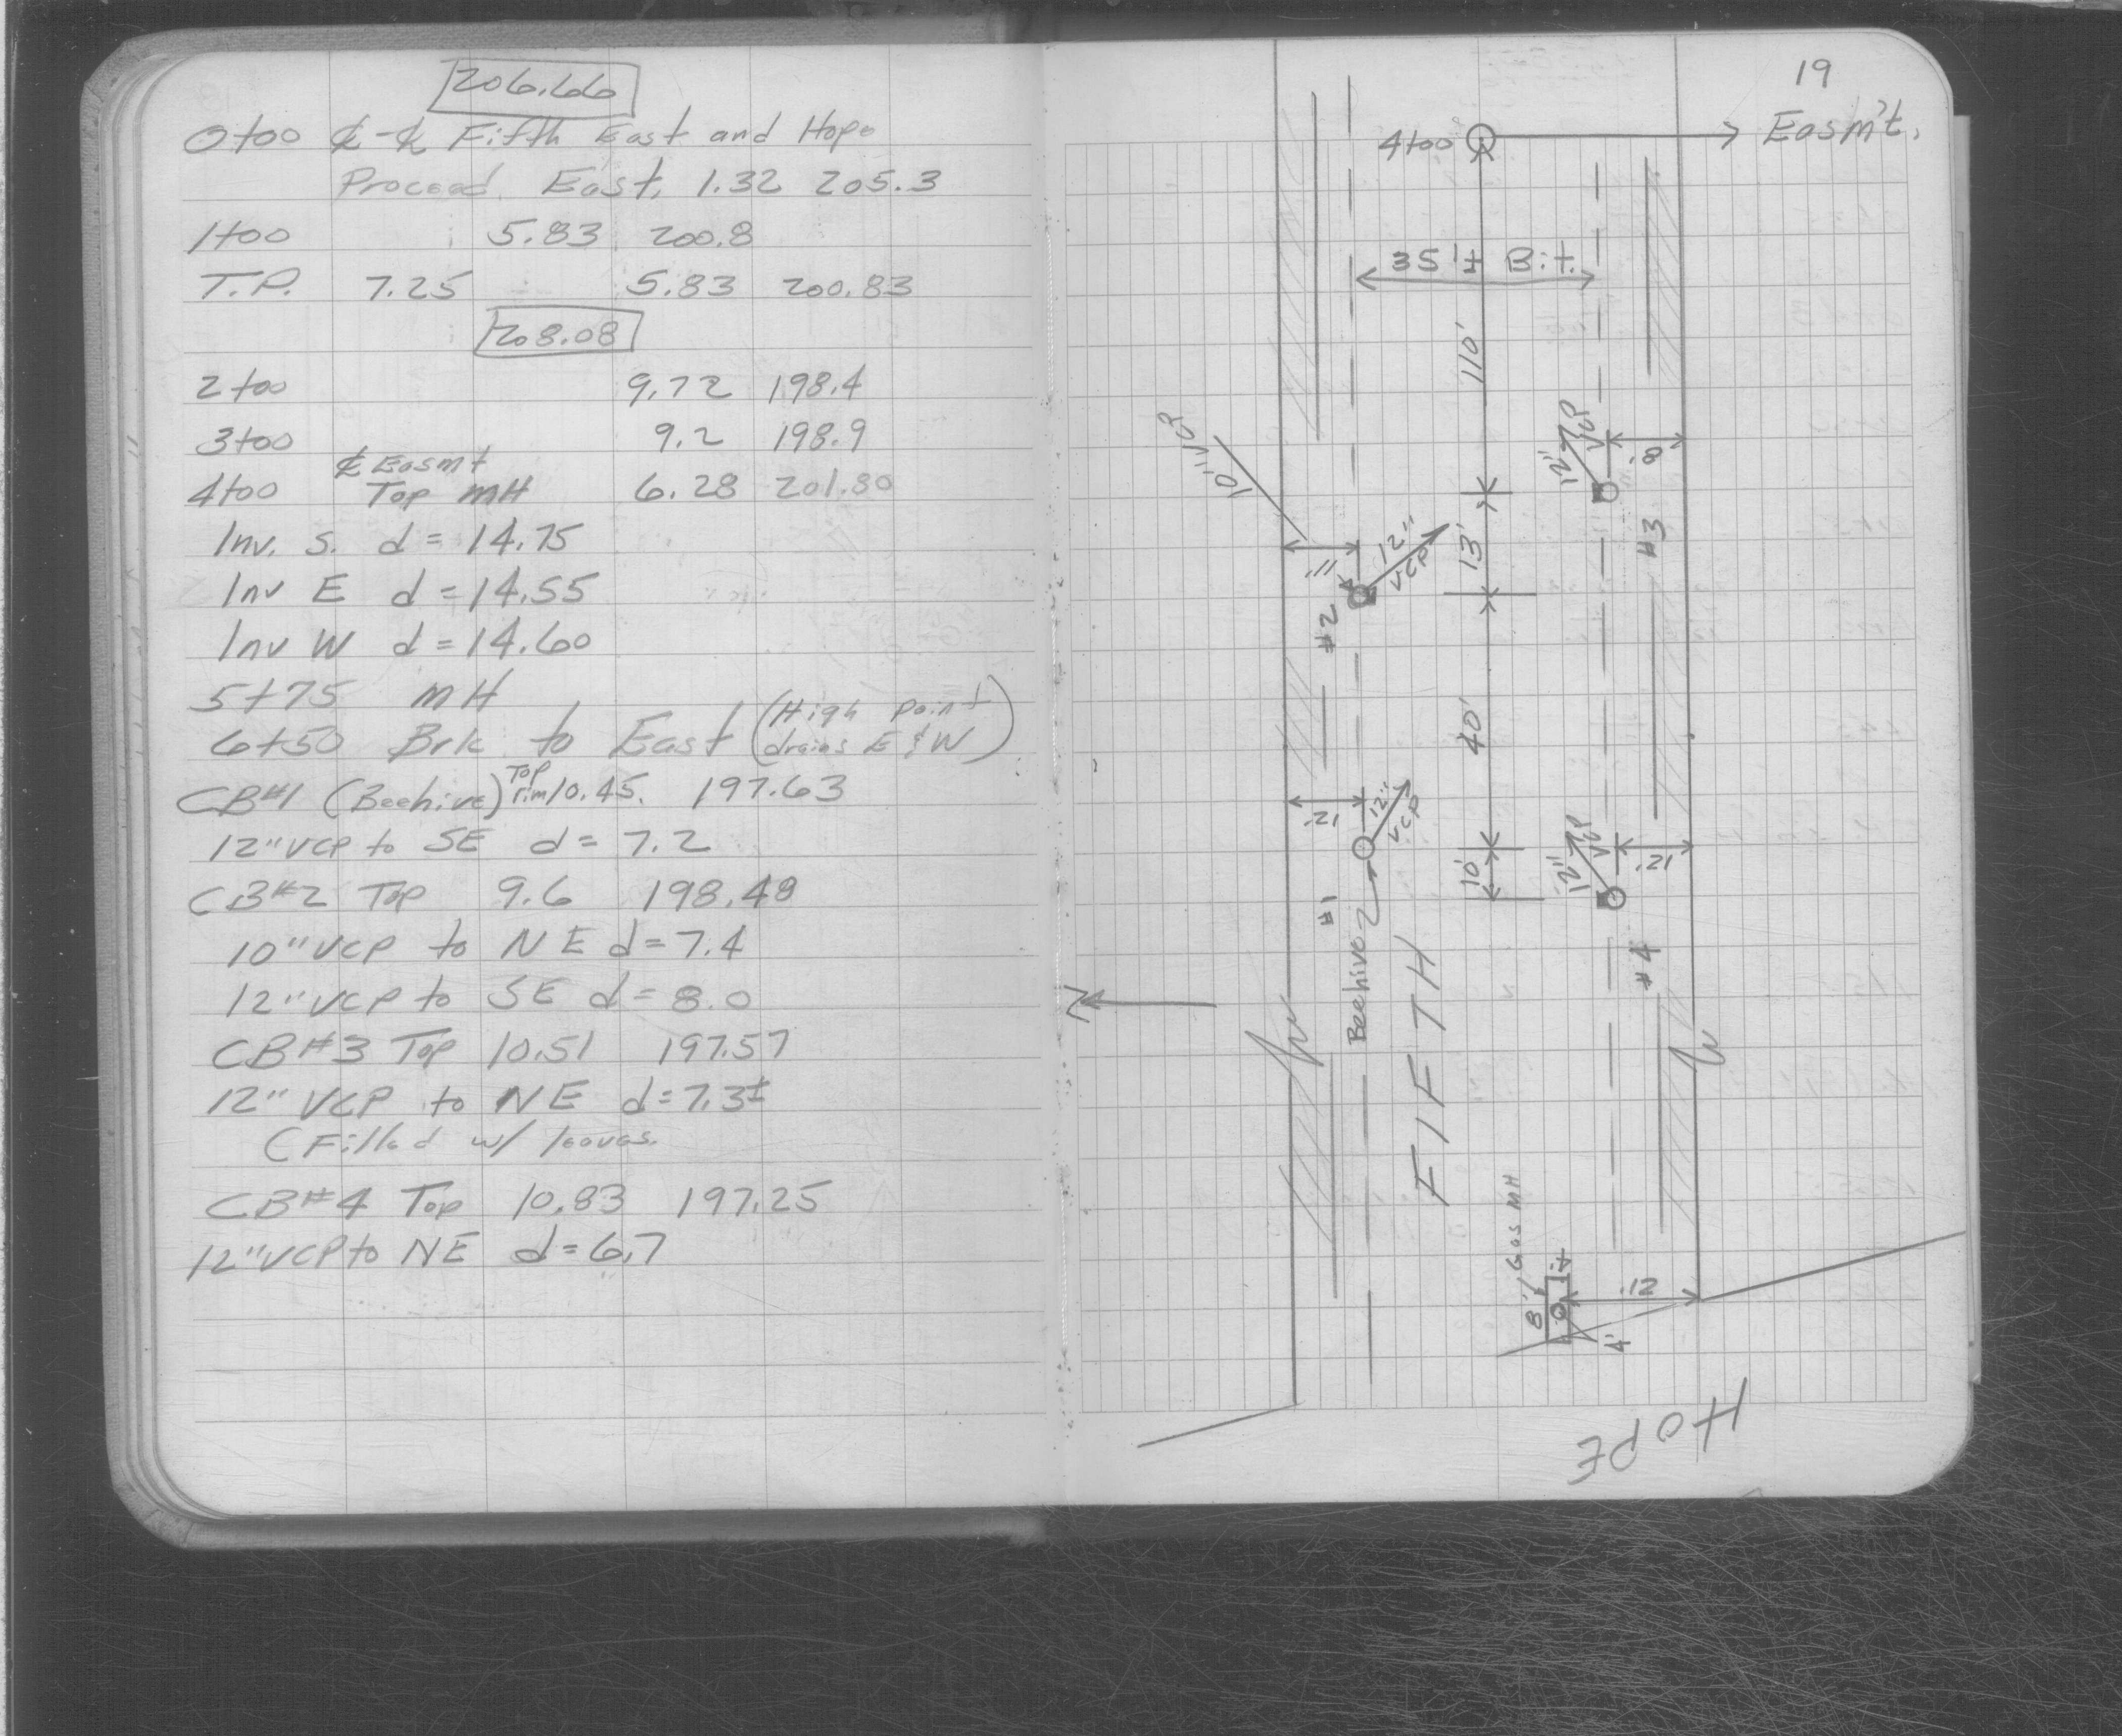 206.66
0+00 ℄-℄ Fifth East and Hope
Proceed East, 1.32 205.3
1+00 5.83 200.8
T.P. 7.25 5.83 200.83
208.08
2+00 9.72 198.4
3+00 9.2 198.9
℄ Easmt
4+00 Top MH 6.28 201.80
Inv. S. d = 14.75
Inv E d = 14.55
Inv W d = 14.60
5+75 MH
6+50 Brk to East (High Point drains E & W)
CB#1 (Beehive) Top rim 10.45. 197.63
12" VCP to SE d = 7.2
CB#2 Top 9.6 198.48
10" VCP to NE d = 7.4
12" VCP to SE d = 8.0
CB#3 Top 10.51 197.57
12" VCP to NE d = 7.3±
(Filled w/ leaves.
CB#4 Top 10.83 197.25
12" VCP to NE d = 6.7
19
4+00 Easm't.
35'± Bit.
110'
10" VCP
12" VCP
8'
11'
12" VCP
13'
#3
#2
40'
12'
12" VCP
10'
12" VCP
12'
#1
Beehive
#4
FIFTH
Gas MH
8'
12'
4'
HOPE